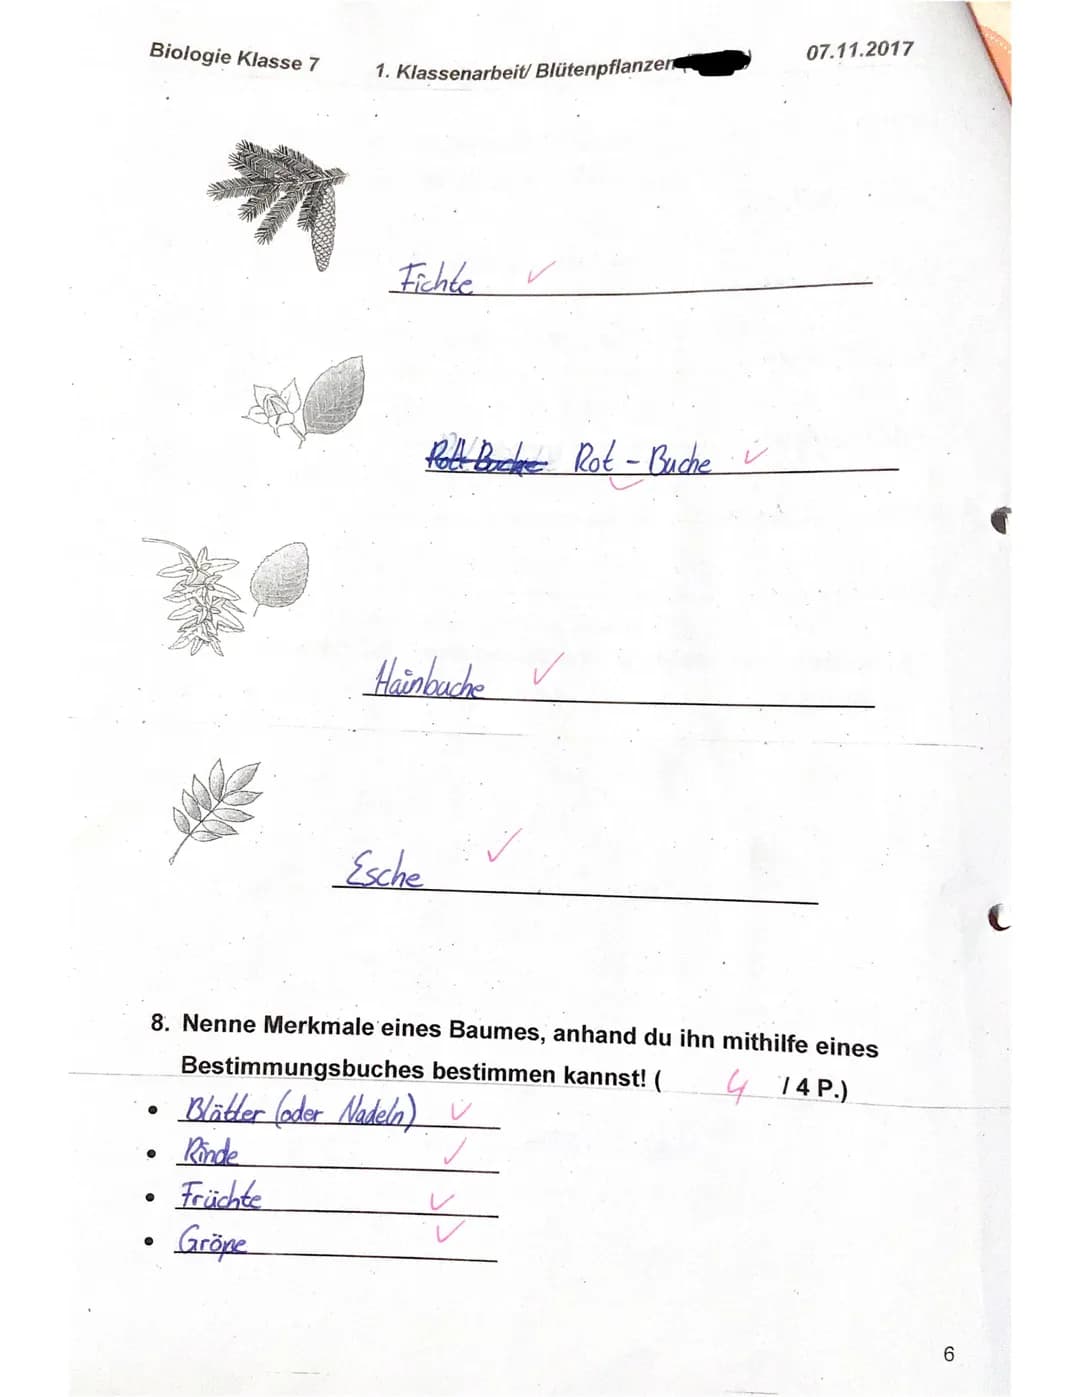 Biologie Klasse 7 1. Klassenarbeit/ Blütenpflanzen 07.11.2017
Fichte
Rot-Buche Rot - Buche
Hainbuche
Esche
8. Nenne Merkmale eines Baumes, anhand du ihn mithilfe eines
Bestimmungsbuches bestimmen kannst! ( 4 / 4 P.)
• Blätter (oder Nadeln)
• Rinde
• Früchte
• Größe
6